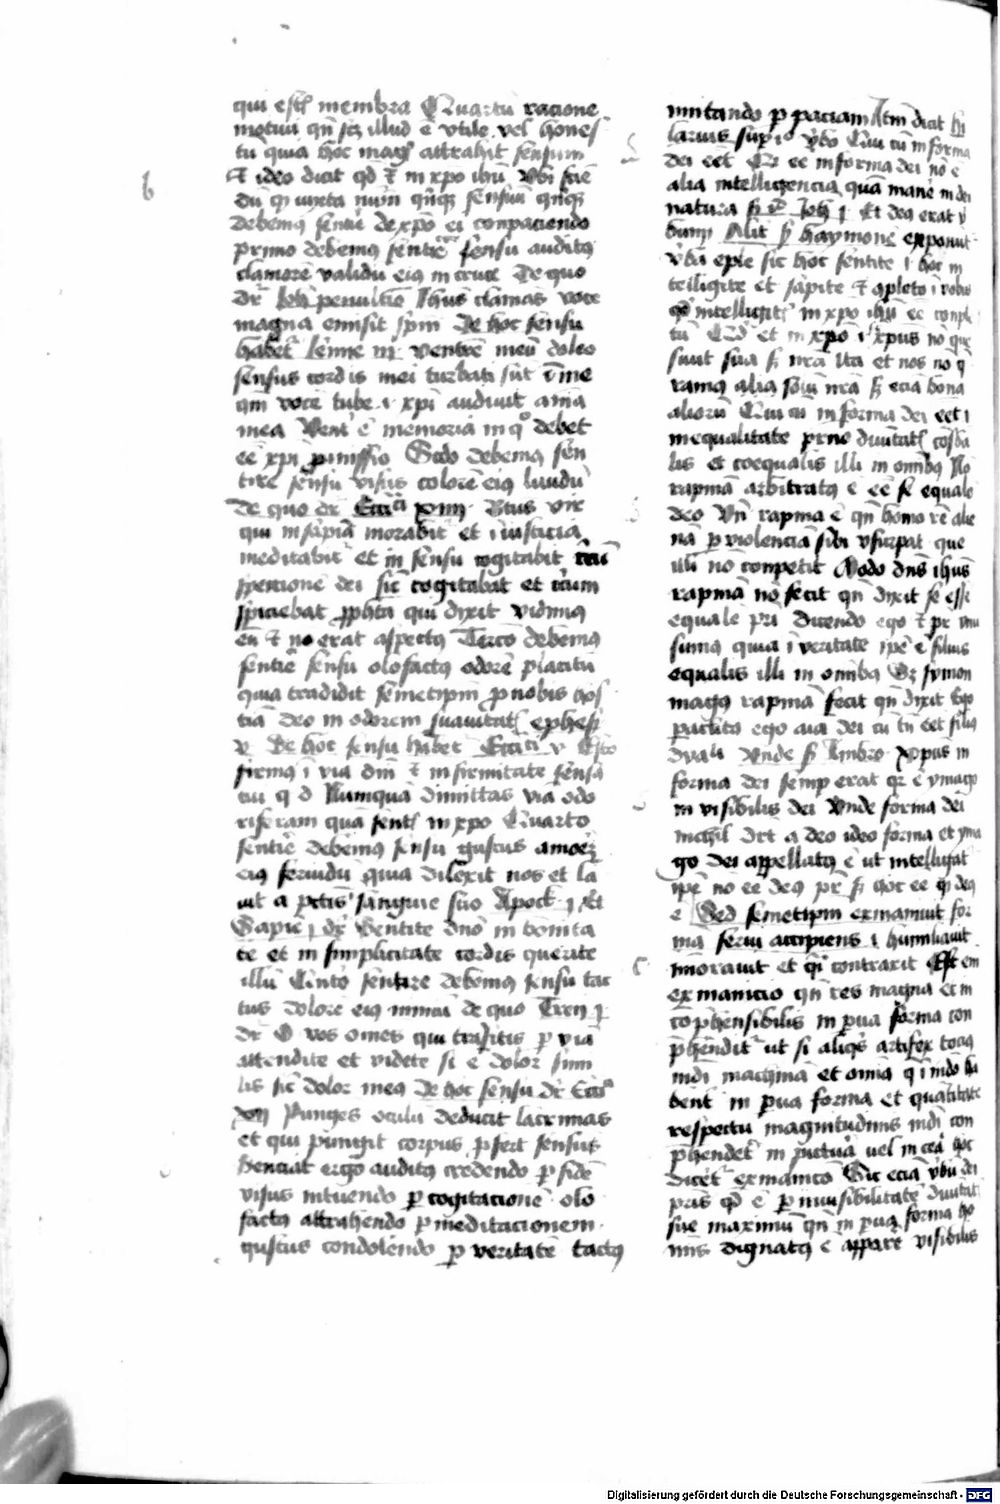 qui estis membra Quartū racione
motiui qn̄ scz illud ē vtile vel hones
tū quia hoc magis attrahit sensum
et ideo dicit qd̄ ē in xp̄o ihū vbi scie
dū qd iuxta nūm quīqz sensuū quīqz
debemꝰ sentire de xp̄o ei compaciendo
primo debemꝰ sentire sensu auditꝰ
clamorē validū eiꝰ in cruce De quo
dr̄ Joh penultiō Ihūs clamās voce
magna emisit spm̄ De hoc sensu
habet̄ ventrē meū doleo
sensus cordis mei turbati sūt ī me
qm̄ voce tube .i. xp̄i audiuit aīa
mea Vent̄ ē memoria in qͦ debet
eē xp̄i ꝓmissio Scdo debemꝰ sen
tire sensu visus colorē eiꝰ liuidū
De quo dr̄ Ecciͨi xiiij Btūs vir
qui in sapīa morabit̄ et ī iusticia
meditabit̄ et in sensu cogitabit circū
spectionē dei sic cogitabat et circum
spiciebat ꝓphta qui dixit vidimꝰ
eū et nō erat aspectꝰ Tercō debemꝰ
sentire sensu olofactꝰ odorē placitū
quia tradidit semetipm̄ ꝓ nobis hos
tiā deo in odorem suauitatis ephesi
v De hoc sensu habet̄ Ecciͨi v Esto
firmꝰ ī via dnī et in firmitate sensꝰ
tui q d Nunquā dimittas via odo
riferam qua sentis in xp̄o Quarto
sentire debemꝰ sensu gustus amorē
eiꝰ feruidū quia dilexit nos et la
uit a pctīs sanguine suo Apoc j Et
Sapie j dr̄ Sentite dnō in bonita
te et in simplicitate cordis querite
illū Quīto sentire debemꝰ sensu tac
tus dolorē eiꝰ nimiū de quo Tren j
dr̄ O vos omēs qui trāsitis ꝑ via
attendite et videte si ē dolor simi
lis sic dolor meꝰ De hoc sensu dr̄ Ecciͨi
xxij Pungēs oculū deducit lacrimas
et qui pungit corpus ꝓfert sensus
Senciat ergo auditꝰ credendo ꝑ fidē
visus intuendo ꝑ cogitacionē olo
factꝰ attrahendo ꝑ meditacionem
gustus condolendo ꝑ veritatē tactꝰ
imitando ꝑ paciam Itm̄ dicit hi
larius suꝑ vbo Qui cū in forma
dei eēt Qd eē in forma dei nō ē
alia intelligencia quā manē in dei
natura sꝫ Joh j Et deꝰ erat v
bum Alit̄ sꝫ haymonē exponit
vba eple sic hoc sentite .i. hoc in
telligite et sapite et qpleto .i. vobis
qd̄ intelligitis in xp̄o ihū eē compl
tū Qd et in xp̄o .i. xp̄us nō que
siuit sua sꝫ nrā Ita et nos nō q
ramꝰ alia solū nrā sꝫ ecia bona
alioru Qui cū in forma dei eēt .i.
in equalitate prnē diuitatis cosba
lis et coequalis illi in omibꝰ Nō
rapinā arbitratꝰ ē eē se equalē
deo Vn̄ rapina ē qn̄ homo rē alie
nā ꝑ violenciā sibi vsurpat que
illi nō competit Modo dn̄s ihūs
rapinā nō fecit qn̄ dixit se esse
equalē pri dicendo ego et pr̄ vnū
sumꝰ quia ī veritate ipē ē filius
equalis illi in omibꝰ Sꝫ symon
magꝰ rapinā fecit qn̄ dixit Ego
paclitꝰ ego aīa dei cū tn̄ eēt filiꝰ
dyaboli Vnde sꝫ Ambro Xp̄us in
forma dei semꝑ erat qr ē ymago
in visibilis dei Vnde forma dei
nichil dr̄t a deo ideo forma et yma
go dei appellatꝰ ē ut intelligat̄
ipē nō eē deꝰ pr̄ sꝫ hoc eē qd deꝰ
ē Sed semetipm̄ exinaniuit for
mā serui accipiens .i. humiliauit
minorauit et qi contraxit Est em̄
exinanicio qn̄ res magna et in
cōphensibilis in ꝑua forma con
phendit̄ ut si aliqs artifex totā
mdi machinā et omīa q ī mdo ha
bent in ꝑua forma et quātitate
respectu magnitudinis mdi con
phendet̄ in pictura vel in cera hoc
dicet̄ exinanicō Sic ecia vbū dei
pris qd ē ꝑ inuisibilitatē diuitat
sue maximū qn̄ in ꝑua forma ho
minis dignatꝰ ē apparē visibilis
Digitalisierung gefördert durch die Deutsche Forschungsgemeinschaft - DFG